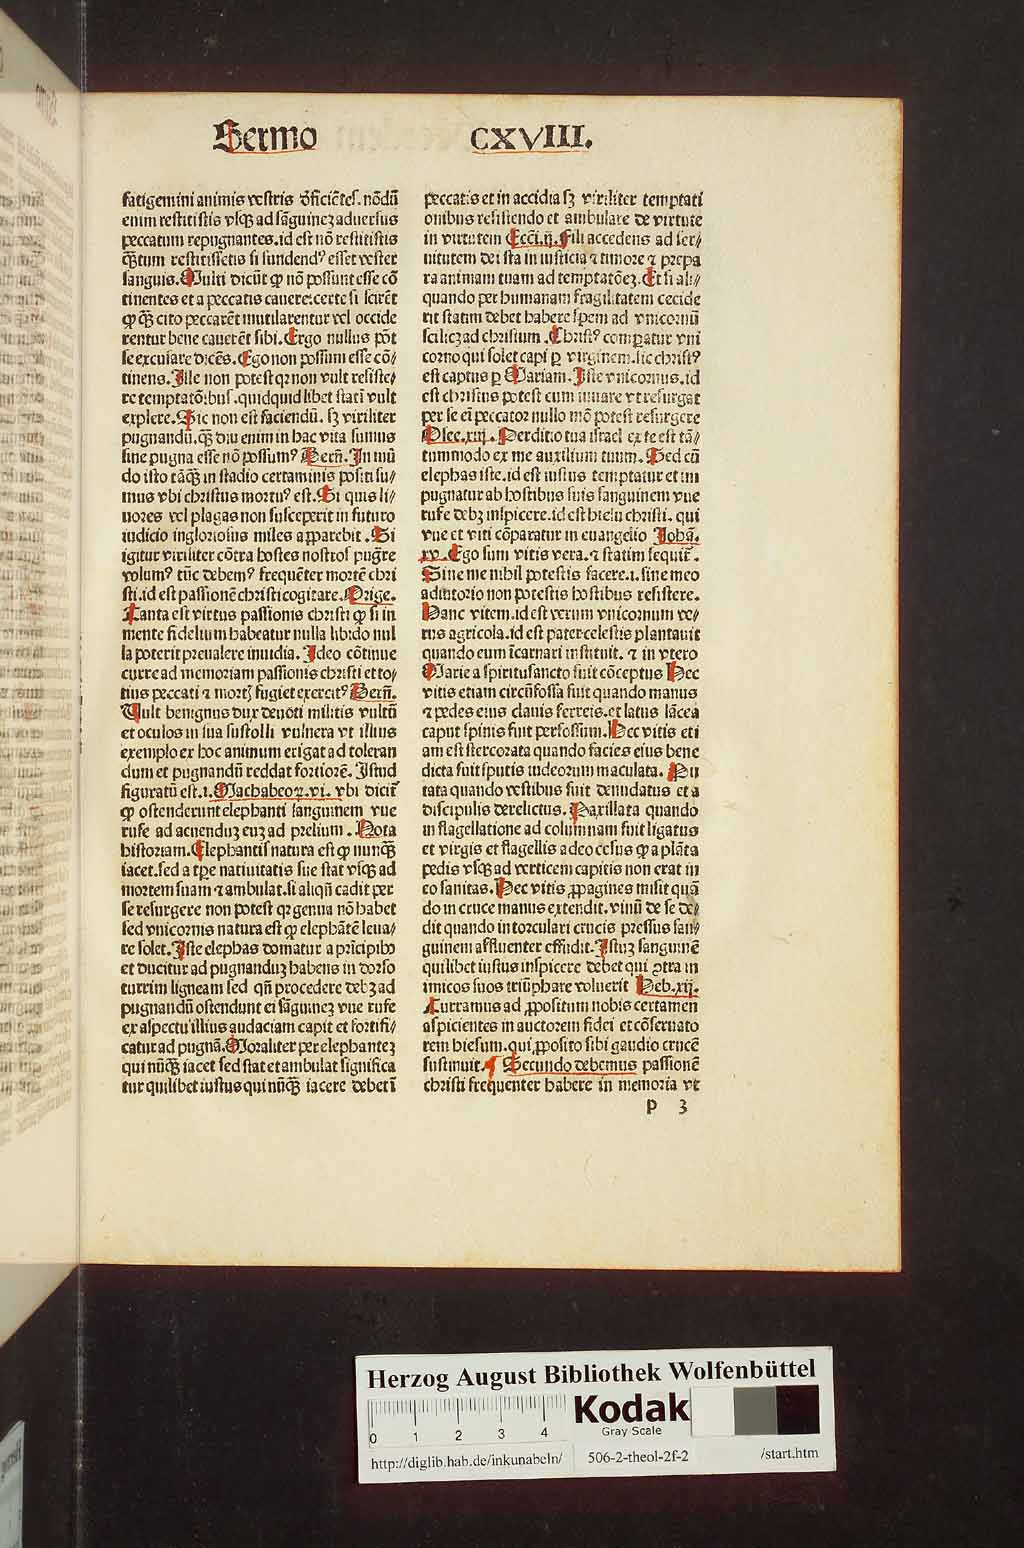 Sermo CXVIII.
fatigemini animis vestris deficiẽtes. nõdũ
enim restitistis vsqꝫ ad sãguinez aduersus
peccatum repugnantes. id est nõ restitistis
q̃tum restitissetis si fundendꝰ esset vester
sanguis. Multi dicũt ꝙ nõ possunt esse cõ
tinentes et a peccatis cauere: certe si scirẽt
ꝙ q̃ cito peccarẽt mutilarentur vel occide
rentur bene cauerẽt sibi. Ergo nullus põt
se excusare dicẽs. Ego non possum esse cõ⸗
tinens. Ille non potest qꝛ non vult resiste⸗
re temptatõibus. quidquid libet statĩ vult
explere. Sic non est faciendũ. sꝫ viriliter
pugnandũ. q̃ diu enim in hac vita sumus
sine pugna esse nõ possumꝰ Bern̄. In mũ
do isto tãq̃ in stadio certaminis positi su⸗
mus vbi christus mortuꝰ est. Si quis li⸗
uores vel plagas non susceperit in futuro
iudicio ingloriosus miles apparebit. Si
igitur viriliter cõtra hostes nostros pug̃re
volumꝰ tũc debemꝰ frequẽter mortẽ chri
sti. id est passionẽ christi cogitare. Orige.
Tanta est virtus passionis christi ꝙ si in
mente fidelium habeatur nulla libido nul
la poterit preualere inuidia. Ideo cõtinue
curre ad memoriam passionis christi et to⸗
tius peccati ⁊ mortꝭ fugiet exercitꝰ Bern̄.
Vult benignus dux deuoti militis vultũ
et oculos in sua sustolli vulnera vt illius
exemplo ex hoc animum erigat ad toleran
dum et pugnandũ reddat fortiorẽ. Istud
figuratũ est .i. Machabeoꝝ. vi. vbi dicit̃
ꝙ ostenderunt elephanti sanguinem vue
rufe ad acuenduꝫ euꝫ ad prelium. Nota
historiam. Elephantis natura est ꝙ nunq̃
iacet. sed a tꝑe natiuitatis sue stat vsqꝫ ad
mortem suam ⁊ ambulat. si aliqñ cadit per
se resurgere non potest qꝛ genua nõ habet
sed vnicornis natura est ꝙ elephãtẽ leua⸗
re solet. Iste elephas domatur a prĩcipibꝰ
et ducitur ad pugnanduꝫ habens in dorso
turrim ligneam sed qñ procedere debꝫ ad
pugnandũ ostendunt ei sãguineꝫ vue rufe
ex aspectu illius audaciam capit et fortifi⸗
catur ad pugnã. Moraliter per elephanteꝫ
qui nũq̃ iacet sed stat et ambulat significa
tur quilibet iustus qui nũq̃ iacere debet ĩ
peccatis et in accidia sꝫ viriliter temptati
onibus resistendo et ambulare de virtute
in virtutem Ecci. ij. Fili accedens ad ser⸗
uitutem dei sta in iusticia ⁊ timore ⁊ prepa
ra animam tuam ad temptatõeꝫ. Et si ali⸗
quando per humanam fragilitatem cecide
rit statim debet habere spem ad vnicornũ
scilicꝫ ad christum. Christꝰ compatur vni
corno qui solet capi ꝑ virginem. sic christꝰ
est captus ꝑ Mariam. Iste vnicornus. id
est christus potest cum iuuare vt resurgat
per se eĩ peccator nullo mõ potest resurgere
Osee. xiij. Perditio tua israel ex te est tã⸗
tummodo ex me auxilium tuum. Sed cũ
elephas iste. id est iustus temptatur et im
pugnatur ab hostibus suis sanguinem vue
rufe debꝫ inspicere. id est hiesu christi. qui
vue et viti cõparatur in euangelio Johã.
xv. Ego sum vitis vera. ⁊ statim sequit̃.
Sine me nihil potestis facere. i. sine meo
adiutorio non potestis hostibus resistere.
Hanc vitem. id est verum vnicornum ve⸗
rus agricola. id est pater celestis plantauit
quando eum ĩcarnari instituit. ⁊ in vtero
Marie a spiritusancto fuit cõceptus Hec
vitis etiam circũfossa fuit quando manus
⁊ pedes eius clauis ferreis. et latus lãcea
caput spinis fuit perfossum. Hec vitis eti
am est stercorata quando facies eius bene
dicta fuit sputis iudeorum maculata. Pu
tata quando vestibus fuit denudatus et a
discipulis derelictus. Paxillata quando
in flagellatione ad columnam fuit ligatus
et virgis et flagellis adeo cesus ꝙ a plãta
pedis vsqꝫ ad verticem capitis non erat in
eo sanitas. Hec vitis ꝓpagines misit quã
do in cruce manus extendit. vinũ de se de⸗
dit quando in torculari crucis pressus san⸗
guinem affluenter effudit. Istuꝫ sanguinẽ
quilibet iustus inspicere debet qui ꝯtra in
imicos suos triũphare voluerit Heb. xij.
Curramus ad ꝓpositum nobis certamen
aspicientes in auctorem fidei et cõseruato
rem hiesum. qui ꝓposito sibi gaudio crucẽ
sustinuit. ¶ Secundo debemus passionẽ
christi frequenter habere in memoria vt
p 3
Herzog August Bibliothek Wolfenbüttel
0 1 2 3 4
Kodak
Gray Scale
http://diglib.hab.de/inkunabeln/ 506-2-theol-2f-2 /start.htm